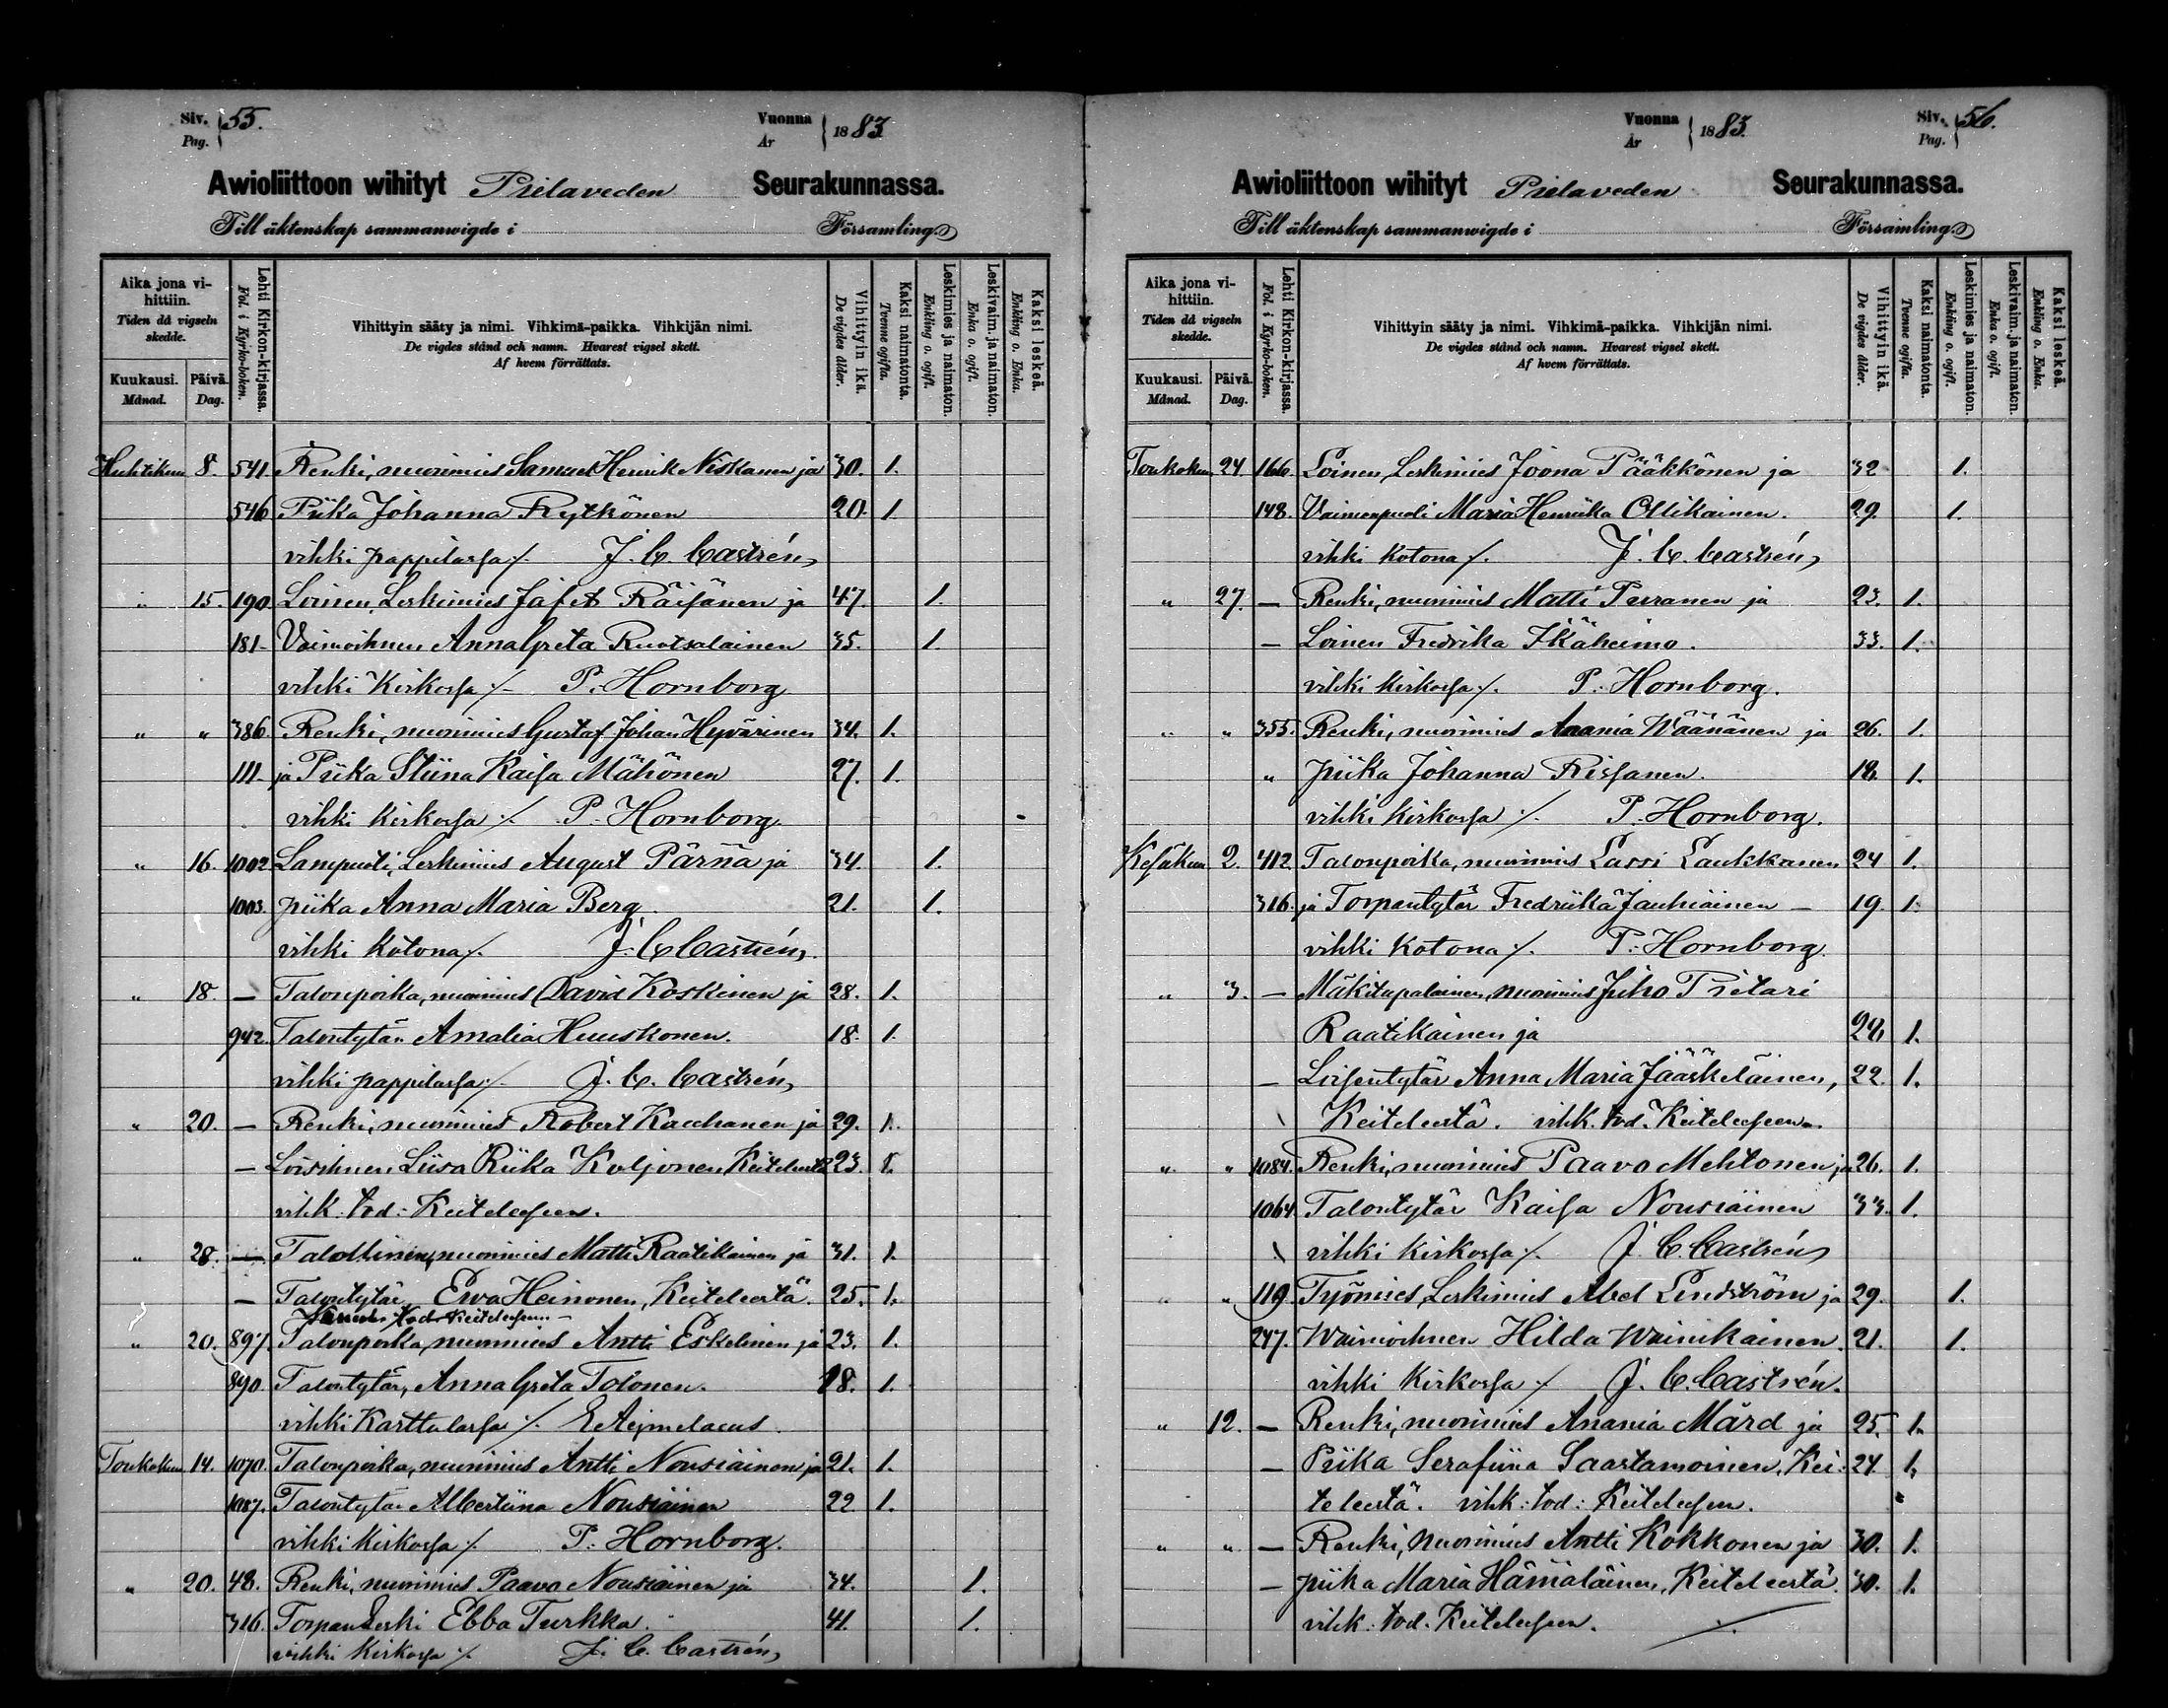 Siv. Pag. 55.
Vuonna År 1883.
Awioliittoon wihityt Pielaveden Seurakunnassa.
Till äktenskap sammanwigde i Församling.
Aika jona vihittiin. Tiden då vigseln skedde.
Kuukausi. Månad.
Päivä. Dag.
Lehti Kirkon-kirjassa. Fol. i Kyrko-boken.
Vihittyin sääty ja nimi. Vihkimä-paikka. Vihkijän nimi.
De vigdes stånd och namn. Hvarest vigsel skett.
Af hvem förrättats.
Vihittyin ikä. De vigdes ålder.
Kaksi naimatonta. Tvenne ogifta.
Leskimies ja naimaton. Enkling o. ogift.
Leskivaim. ja naimaton. Enka o. ogift.
Kaksi leskeä. Enkling o. Enka.
Huhtikuu 8. 541. Renki, nuorimies Samuel Henrik Niskanen ja 30. 1.
546 Piika Johanna Rytkönen 20. 1.
vihki pappilassa ./. J. C. Castrén,
„ 15. 190. Loinen, Leskimies Jafet Räisänen ja 47. 1.
181. Vaimoihmen Anna Greta Ruotsalainen 35. 1.
vihki Kirkossa ./. P. Hornborg
„ „ 386. Renki, nuorimies Gustaf Johan Hyvärinen 34. 1.
111. ja Piika Stiina Kaisa Mähönen 27. 1.
vihki Kirkossa ./. P. Hornborg.
„ 16. 1002. Lampuoti, Leskimies August Pärnä ja 34. 1.
1003. piika Anna Maria Berg 21. 1.
vihki Kotona ./. J. C. Castrén,
„ 18. — Talonpoika, nuorimies David Koskinen ja 28. 1.
942. Talontytär Amalia Huuskonen. 18. 1.
vihki pappilassa ./. J. C. Castrén,
„ 20. — Renki, nuorimies Robert Kauhanen ja 29. 1.
— Loisihmen Liisa Riika Koljonen Keiteleestä 23. 1.
vihk. tod: Keiteleesen.
„ 28. — Talollinen, nuorimies Matti Raatikainen ja 31. 1.
— Talontytär Ewa Heinonen, Keiteleestä. 25. 1.
tod. Keiteleesen.
„ 20. 897. Talonpoika, nuorimies Antti Eskelinen ja 23. 1.
890. Talontytär, Anna Greta Tolonen. 18. 1.
vihki Karttulassa ./. E Aejmelaeus.
Toukokuu 14. 1070. Talonpoika, nuorimies Antti Nousiainen ja 21. 1.
1087. Talontytär Albertiina Nousiainen 22 1.
vihki Kirkossa ./. P. Hornborg.
„ 20. 48. Renki, nuorimies Paavo Nousiainen ja 34. 1.
316. Torpan Leski Ebba Turkka. 41. 1.
vihki Kirkossa ./. J. C. Castrén,
Vuonna År 1883.
Siv. Pag. 56.
Awioliittoon wihityt Pielaveden Seurakunnassa.
Till äktenskap sammanwigde i Församling.
Aika jona vihittiin. Tiden då vigseln skedde.
Kuukausi. Månad.
Päivä. Dag.
Lehti Kirkon-kirjassa. Fol. i Kyrko-boken.
Vihittyin sääty ja nimi. Vihkimä-paikka. Vihkijän nimi.
De vigdes stånd och namn. Hvarest vigsel skett.
Af hvem förrättats.
Vihittyin ikä. De vigdes ålder.
Kaksi naimatonta. Tvenne ogifta.
Leskimies ja naimaton. Enkling o. ogift.
Leskivaim. ja naimaton. Enka o. ogift.
Kaksi leskeä. Enkling o. Enka.
Toukokuu 24. 166. Loinen, Leskimies Joona Pääkkönen ja 32 1.
148. Vaimonpuoli Maria Henriika Ollikainen. 29. 1.
vihki Kotona ./. J. C. Castrén,
„ 27. — Renki, nuorimies Matti Purranen ja 23. 1.
— Loinen Fredrika Ikäheimo. 33. 1.
vihki Kirkossa ./. P. Hornborg.
„ „ 355. Renki, nuorimies Anania Wäänänen ja 26. 1.
„ piika Johanna Rissanen. 18. 1.
vihki Kirkossa ./. P. Hornborg.
Kesäkuu 2. 412. Talonpoika, nuorimies Lassi Laukkanen 24 1.
316. ja Torpantytär Fredriika Jauhiainen — 19. 1.
vihki Kotona ./. P. Hornborg.
„ 3. — Mäkitupalainen, nuorimies Juho Pietari
Raatikainen ja 28 1.
— Loisentytär Anna Maria Jääskeläinen, 22. 1.
Keiteleestä. vihk. tod. Keiteleesen.
„ „ 1084. Renki, nuorimies Paavo Mehtonen ja 26. 1.
1064. Talontytär Kaisa Nousiainen 33. 1.
vihki Kirkossa ./. J. C. Castrén,
„ „ 119. Työmies, Leskimies Abel Lindström ja 29. 1.
247. Waimoihmen Hilda Wainikainen. 21. 1.
vihki Kirkossa ./. J. C. Castrén.
„ 12. — Renki, nuorimies Anania Mård ja 25. 1.
— Piika Serafiina Saastamoinen, Kei- 24. 1.
teleestä. vihk: tod: Keiteleesen.
„ „ — Renki, nuorimies Antti Kokkonen ja 30. 1.
— piika Maria Hämäläinen, Keiteleestä. 30. 1.
vihk. tod. Keiteleesen. ./.